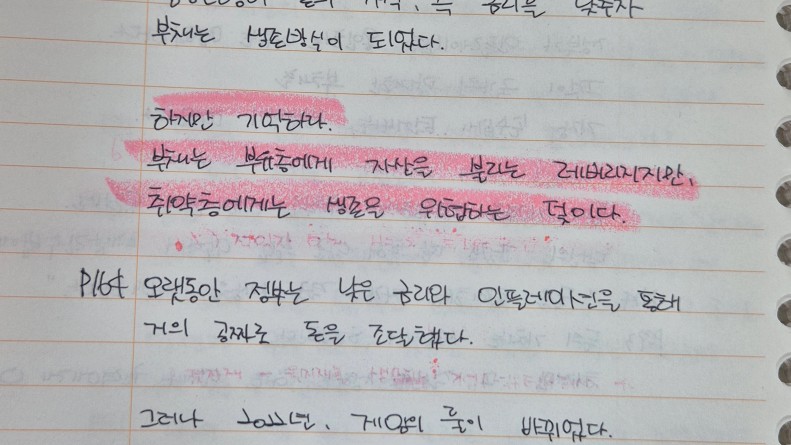 부채는 생존방식이 되었다.
하지만 기억하라.
부채는 부유층에게 자산을 불리는 레버리지지만,
취약층에게는 생존을 위협하는 덫이다.
P164 오랫동안 정부는 낮은 금리와 인플레이션을 통해
거의 공짜로 돈을 조달했다.
그러나 2022년, 게임의 룰이 바뀌었다.